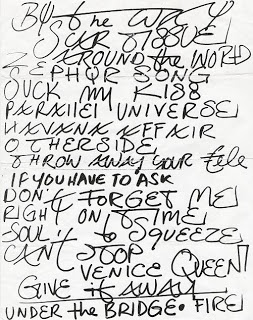 By the WAY
SCAR TISSUE
AROUND the WORLD
ZEPHYR SONG
SUCK my KISS
PARALLEL UNIVERSE
HAVANA AFFAIR
OTHERSIDE
THROW AWAY YOUR tele
IF YOU HAVE TO ASK
DON't FORGET ME
RIGHT ON TIME
SOUL to SQUEEZE
CAN't STOP
VENICE QUEEN
GIVE it AWAY
UNDER the BRIDGE • FIRE